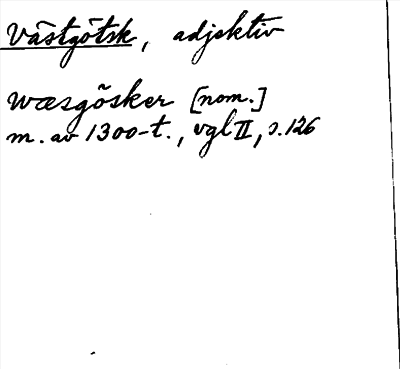 Västgötsk, adjektiv
wæsgösker [nom.]
m. av 1300-t., vgl II, s. 126